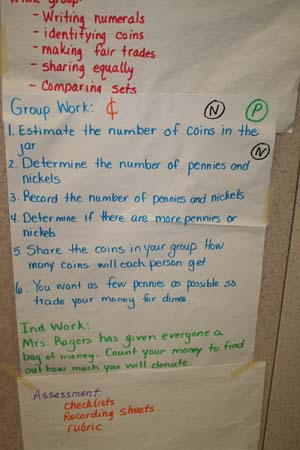 Whole group:
- Writing numerals
- identifying coins
- making fair trades
- sharing equally
- Comparing sets
Group Work: ¢ N P
1. Estimate the number of coins in the
jar N
2. Determine the number of pennies and
nickels
3. Record the number of pennies and nickels
4. Determine if there are more pennies or
nickels
5. Share the coins in your group How
many coins will each person get
6. You want as few pennies as possible so
trade your money for dimes
Ind Work:
Mrs. Rogers has given everyone a
bag of money. Count your money to find
out how much you will donate.
Assessment:
checklists
Recording sheets
rubric